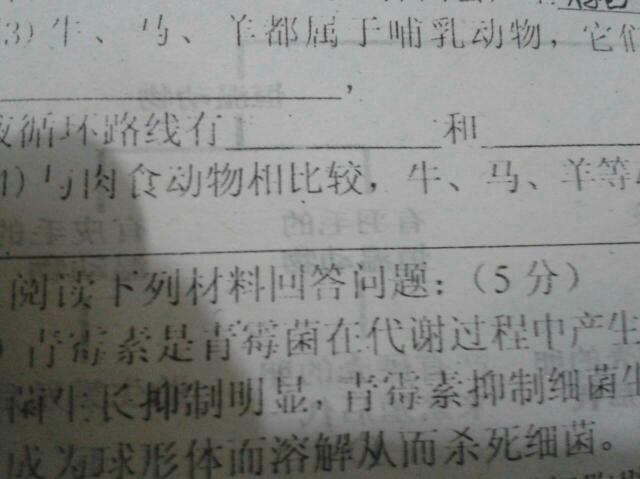 3) 牛、马、羊都属于哺乳动物,它们
________________,
液循环路线有____________和________
4) 与肉食动物相比较,牛、马、羊等
阅读下列材料回答问题:(5分)
) 青霉素是青霉菌在代谢过程中产生
菌生长抑制明显,青霉素抑制细菌
成为球形体而溶解从而杀死细菌。